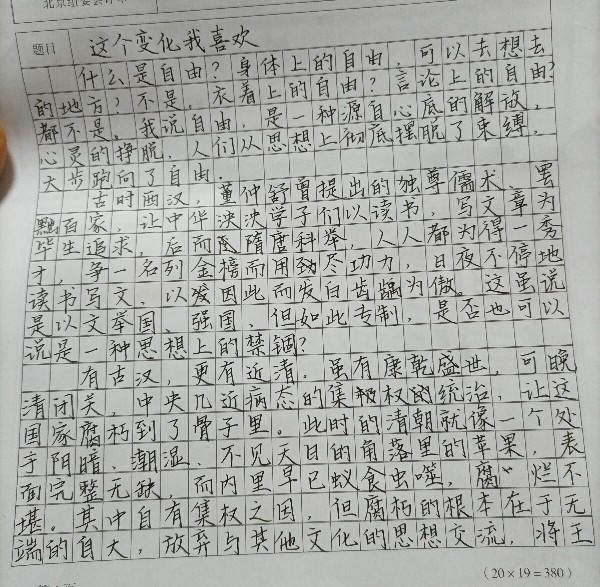 题目 这个变化我喜欢
什么是自由？身体上的自由，可以去想去
的地方？不是，衣着上的自由？言论上的自由？
都不是。我说自由，是一种源自心底的解放，
心灵的挣脱，人们从思想上彻底摆脱了束缚，
大步跑向了自由。
古时西汉，董仲舒曾提出的独尊儒术、罢
黜百家，让中华泱泱学子们以读书，写文章为
毕生追求，后而隋唐科举，人人都为得一秀
才，争一名列金榜而用劲尽功力，日夜不停地
读书写文，以发因此而发白齿龋为傲。这虽说
是以文举国、强国，但如此专制，是否也可以
说是一种思想上的禁锢？
有古汉，更有近清。虽有康乾盛世，可晚
清闭关，中央几近病态的集权的统治，让这
国家腐朽到了骨子里。此时的清朝就像一个处
于阴暗、潮湿、不见天日的角落里的苹果，表
面完整无缺，而内里早已蚁食虫噬，腐烂不
堪。其中自有集权之因，但腐朽的根本在于无
端的自大，放弃与其他文化的思想交流，将王
（20×19=380）